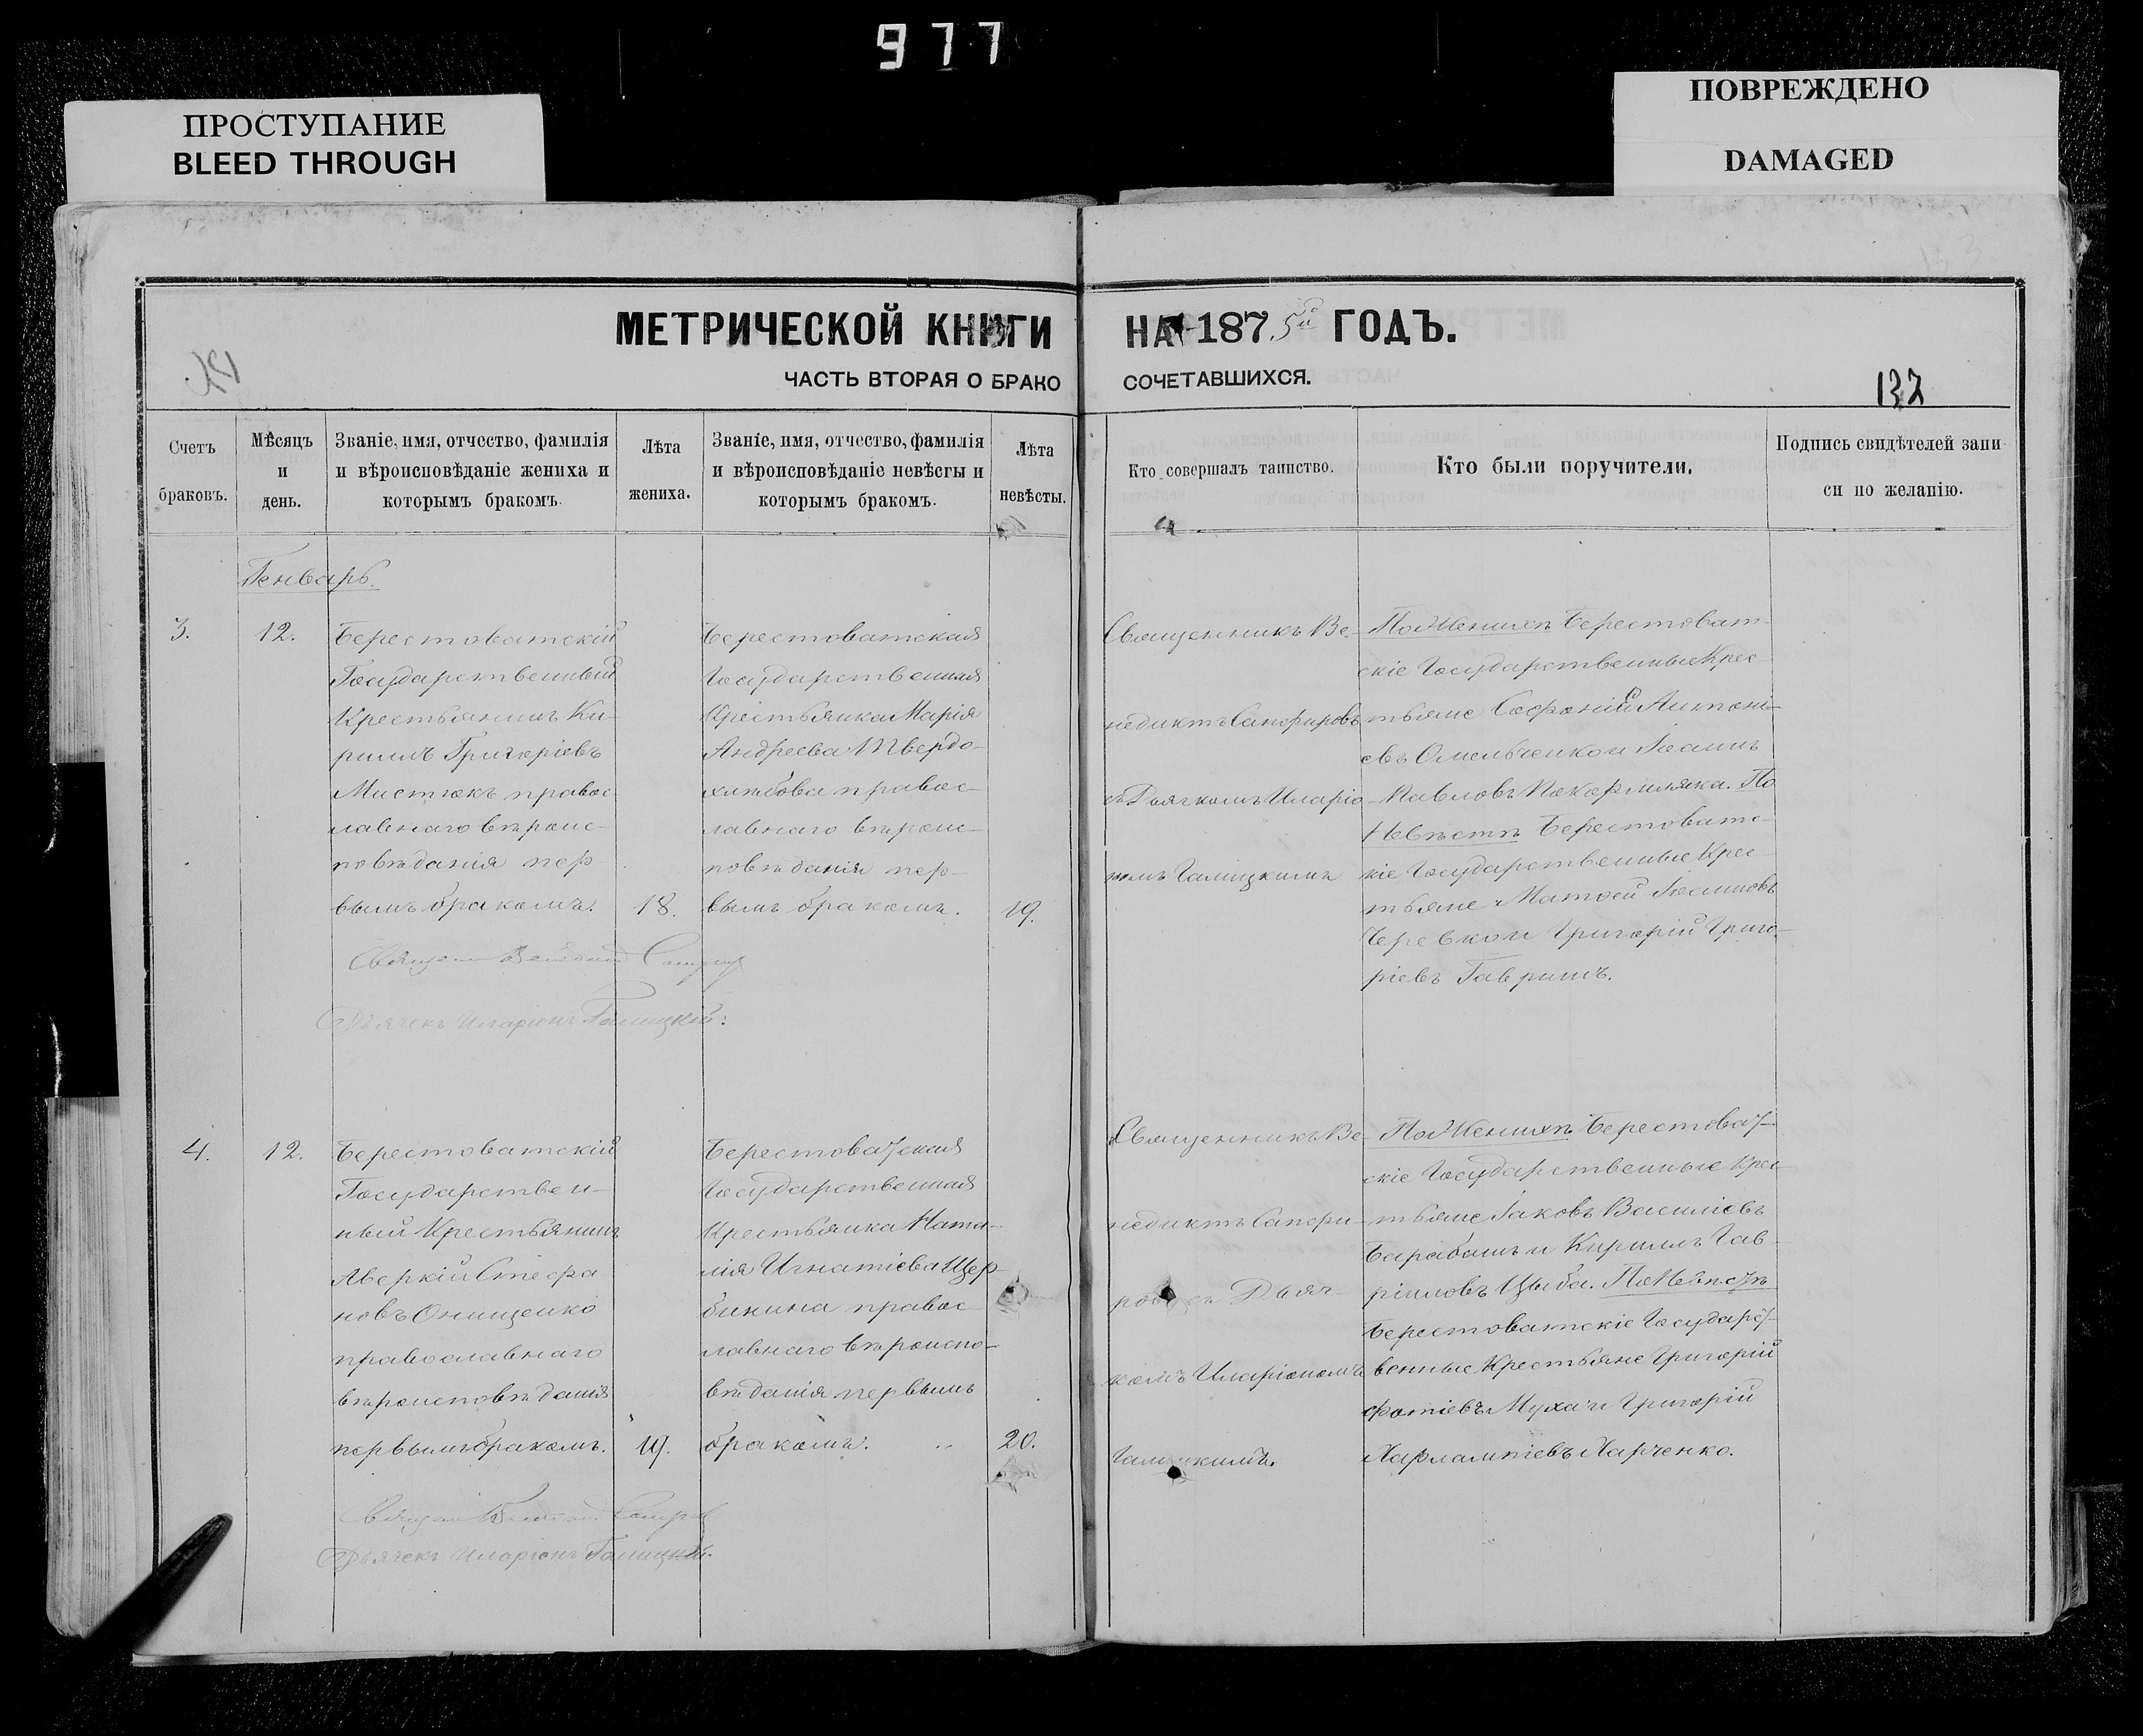 977
ПРОСТУПАНИЕ
BLEED THROUGH
ПОВРЕЖДЕНО
DAMAGED
МЕТРИЧЕСКОЙ КНИГИ НА 1875й ГОДЪ.
ЧАСТЬ ВТОРАЯ О БРАКОСОЧЕТАВШИХСЯ.
137
Счетъ
браковъ.
Мѣсяцъ
и
день.
Званіе, имя, отчество, фамилія
и вѣроисповѣданіе жениха и
которымъ бракомъ.
Лѣта
жениха.
Званіе, имя, отчество, фамилія
и вѣроисповѣданіе невѣсты и
которымъ бракомъ.
Лѣта
невѣсты.
Кто совершалъ таинство.
Кто были поручители.
Подпись свидѣтелей запи
си по желанію.
Генварь.
3.
12.
Берестоватскій
Государственный
Крестьянинъ Ки-
риллъ Григоріевъ
Мистюкъ правос
лавнаго вѣроис-
повѣданія пер
вымъ бракомъ.
18.
Берестоватская
Государственная
Крестьянка Марія
Андреева Твердо-
хлѣбова правос-
лавнаго вѣроис-
повѣданія пер-
вымъ бракомъ.
19.
Священникъ Ве-
недиктъ Сапфировъ
съ Дьячкомъ Иларіо-
номъ Галицкимъ
По Женихѣ Берестоват-
скіе Государственные Крес-
тьяне Софоній Антоні-
евъ Омельченко и Іоаннъ
Павловъ Покормляка. По
Невѣстѣ Берестоватс-
кіе Государственные Крес-
тьяне Матвей Іоанновъ
Черевко и Григорій Григо-
ріевъ Гавришъ.
Дьячекъ Иларіонъ Галицкій:
4.
12.
Берестоватскій
Государствен-
ный Крестьянинъ
Аверкій Стефа
новъ Онищенко
православнаго
вѣроисповѣданія
первымъ бракомъ.
19.
Берестоватская
Государственная
Крестьянка Ната-
лія Игнатіева Щер-
бинина правос-
лавнаго вѣроиспо-
вѣданія первымъ
бракомъ.
20.
Священникъ Ве-
недиктъ Сапфи-
ровъ съ Дьяч-
комъ Иларіономъ
Галицкимъ.
По Женихѣ Берестоват-
скіе Государственные Крес-
тьяне Іаковъ Василіевъ
Барабашъ и Кириллъ Гав-
ріиловъ Цыба. По Невѣстѣ
Берестоватскіе Государст-
венные Крестьяне Григорій
Фотіевъ Муха и Григорій
Харлампіевъ Харченко.
Дьячекъ Иларіонъ Галицкій.